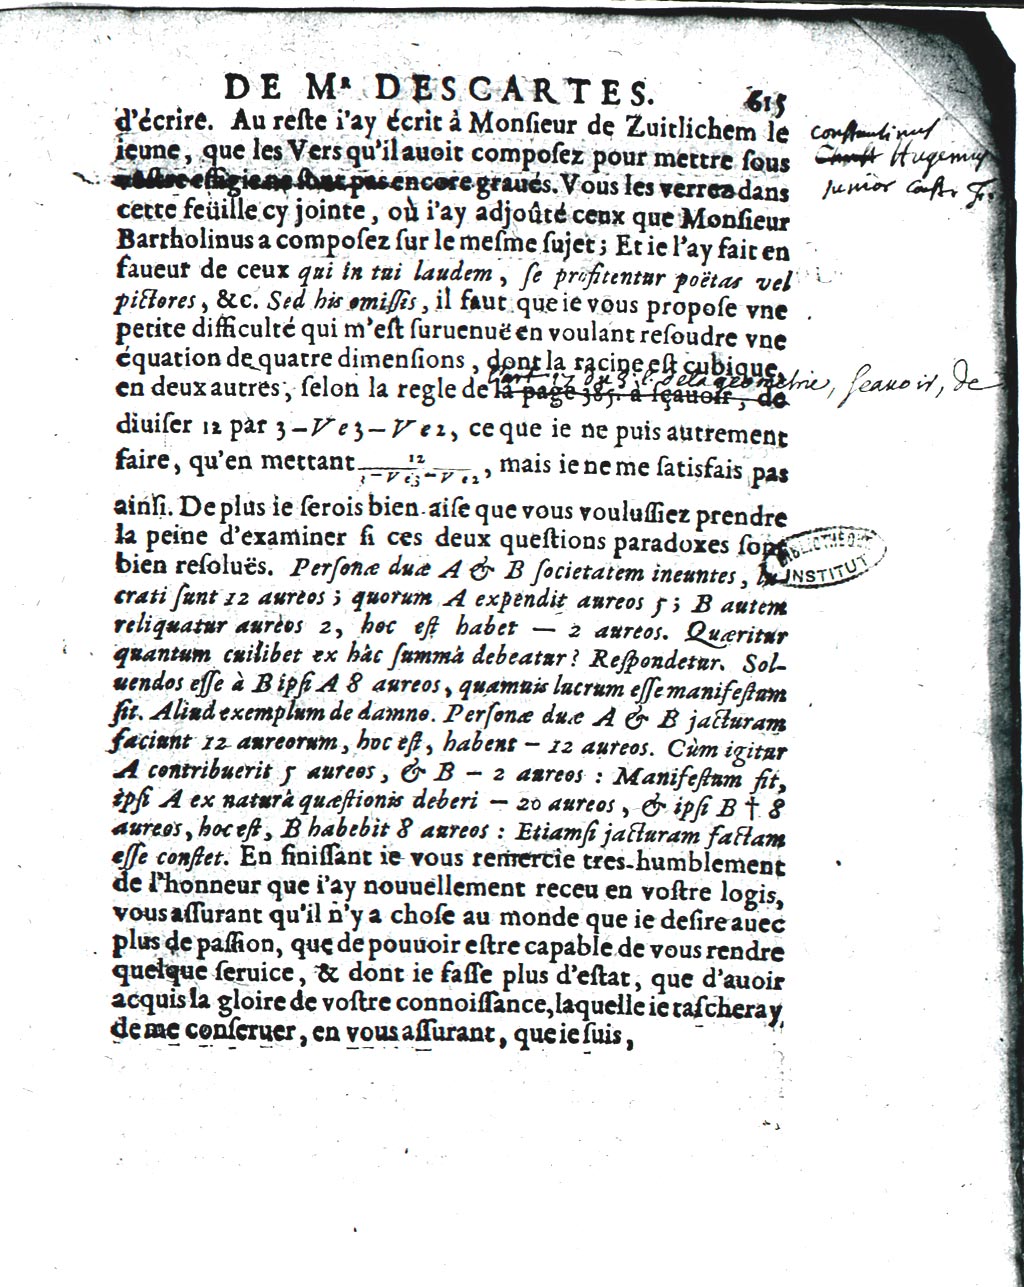 DE Mʀ DESCARTES. 615
d'écrire. Au reſte i'ay écrit à Monſieur de Zuitlichem le
ieune, que les Vers qu'il auoit compoſez pour mettre ſous
voſtre effigie ne ſont pas encore graués. Vous les verrez dans
cette feüille cy jointe, où i'ay adjoûté ceux que Monſieur
Bartholinus a compoſez ſur le meſme ſujet; Et ie l'ay fait en
faueur de ceux qui in tui laudem, ſe profitentur poëtas vel
pictores, &c. Sed his omiſſis, il faut que ie vous propoſe vne
petite difficulté qui m'eſt ſuruenuë en voulant reſoudre vne
équation de quatre dimenſions, dont la racine eſt cubique,
en deux autres, ſelon la regle de la page 385. à ſçauoir, de
l'art. 17 du 3. l. de la geometrie, ſcauoir, de
diuiſer 12 par 3 – V e 3 – V e 2, ce que ie ne puis autrement
faire, qu'en mettant 12 / 3 – V e 3 – V e 2, mais ie ne me ſatisfais pas
ainſi. De plus ie ſerois bien-aiſe que vous vouluſſiez prendre
la peine d'examiner ſi ces deux queſtions paradoxes ſont
bien reſoluës. Perſonæ duæ A & B ſocietatem ineuntes, lu-
crati ſunt 12 aureos; quorum A expendit aureos 5; B autem
reliquatur aureos 2, hoc eſt habet — 2 aureos. Quæritur
quantum cuilibet ex hâc ſummâ debeatur? Reſpondetur. Sol-
uendos eſſe à B ipſi A 8 aureos, quamuis lucrum eſſe manifeſtum
ſit. Aliud exemplum de damno. Perſonæ duæ A & B jacturam
faciunt 12 aureorum, hoc eſt, habent – 12 aureos. Cùm igitur
A contribuerit 5 aureos, & B – 2 aureos : Manifeſtum ſit,
ipſi A ex naturâ quæſtionis deberi – 20 aureos, & ipſi B † 8
aureos, hoc eſt, B habebit 8 aureos : Etiamſi jacturam factam
eſſe conſtet. En finiſſant ie vous remercie tres-humblement
de l'honneur que i'ay nouuellement receu en voſtre logis,
vous aſſurant qu'il n'y a choſe au monde que ie deſire auec
plus de paſſion, que de pouuoir eſtre capable de vous rendre
quelque ſeruice, & dont ie faſſe plus d'eſtat, que d'auoir
acquis la gloire de voſtre connoiſſance, laquelle ie taſcheray
de me conſeruer, en vous aſſurant, que ie ſuis,
conſtantinus
Hugenius
junior
BIBLIOTHEQUE
INSTITUT